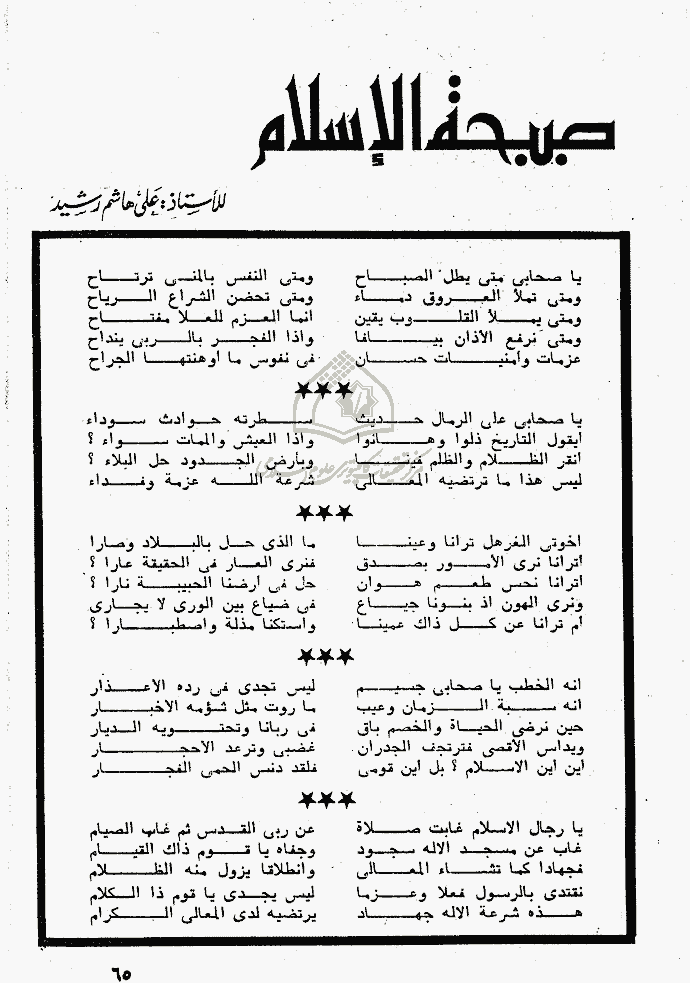 صيحة الإسلام
للأستاذ: علي هاشم رشيد
يا صحابى متى يطل الصباح ومتى النفس بالمنى ترتاح
ومتى تملأ العروق دماء ومتى تحضن الشراع الرياح
ومتى يملأ القلوب يقين انما العزم للعلا مفتاح
ومتى نرفع الأذان بيافا واذا الفجر بالربى ينداح
عزمات وأمنيات حسان فى نفوس ما أوهنتها الجراح
★★★
يا صحابى على الرمال حديث سطرته حوادث سوداء
أيقول التاريخ ذلوا وهانوا واذا العيش والممات سواء ؟
أنقر الظلام والظلم فينا وبأرض الجدود حل البلاء ؟
ليس هذا ما ترتضيه المعالى شرعة الله عزمة وفداء
★★★
اخوتى الغر هل ترانا وعينا ما الذى حل بالبلاد وصارا
أترانا نرى الأمور بصدق فنرى العار فى الحقيقة عارا ؟
أترانا نحس طعم هوان حل فى أرضنا الحبيبة نارا ؟
ونرى الهون اذ بنونا جياع فى ضياع بين الورى لا يجارى
أم ترانا عن كل ذاك عمينا واستكنا مذلة واصطبارا ؟
★★★
انه الخطب يا صحابى جسيم ليس تجدى فى رده الاعذار
انه سبة الزمان وعيب ما روت مثل شؤمه الاخبار
حين نرضى الحياة والخصم باق فى ربانا وتحتويه الديار
ويداس الأقصى فترتجف الجدران غضبى وترعد الاحجار
أين أين الاسلام ؟ بل أين قومى فلقد دنس الحمى الفجار
★★★
يا رجال الاسلام غابت صلاة عن ربى القدس ثم غاب الصيام
غاب عن مسجد الاله سجود وجفاه يا قوم ذاك القيام
فجهادا كما تشاء المعالى وانطلاقا يزول منه الظلام
نقتدى بالرسول فعلا وعزما ليس يجدى يا قوم ذا الكلام
هذه شرعة الاله جهاد يرتضيه لدى المعالى الكرام
٦٥